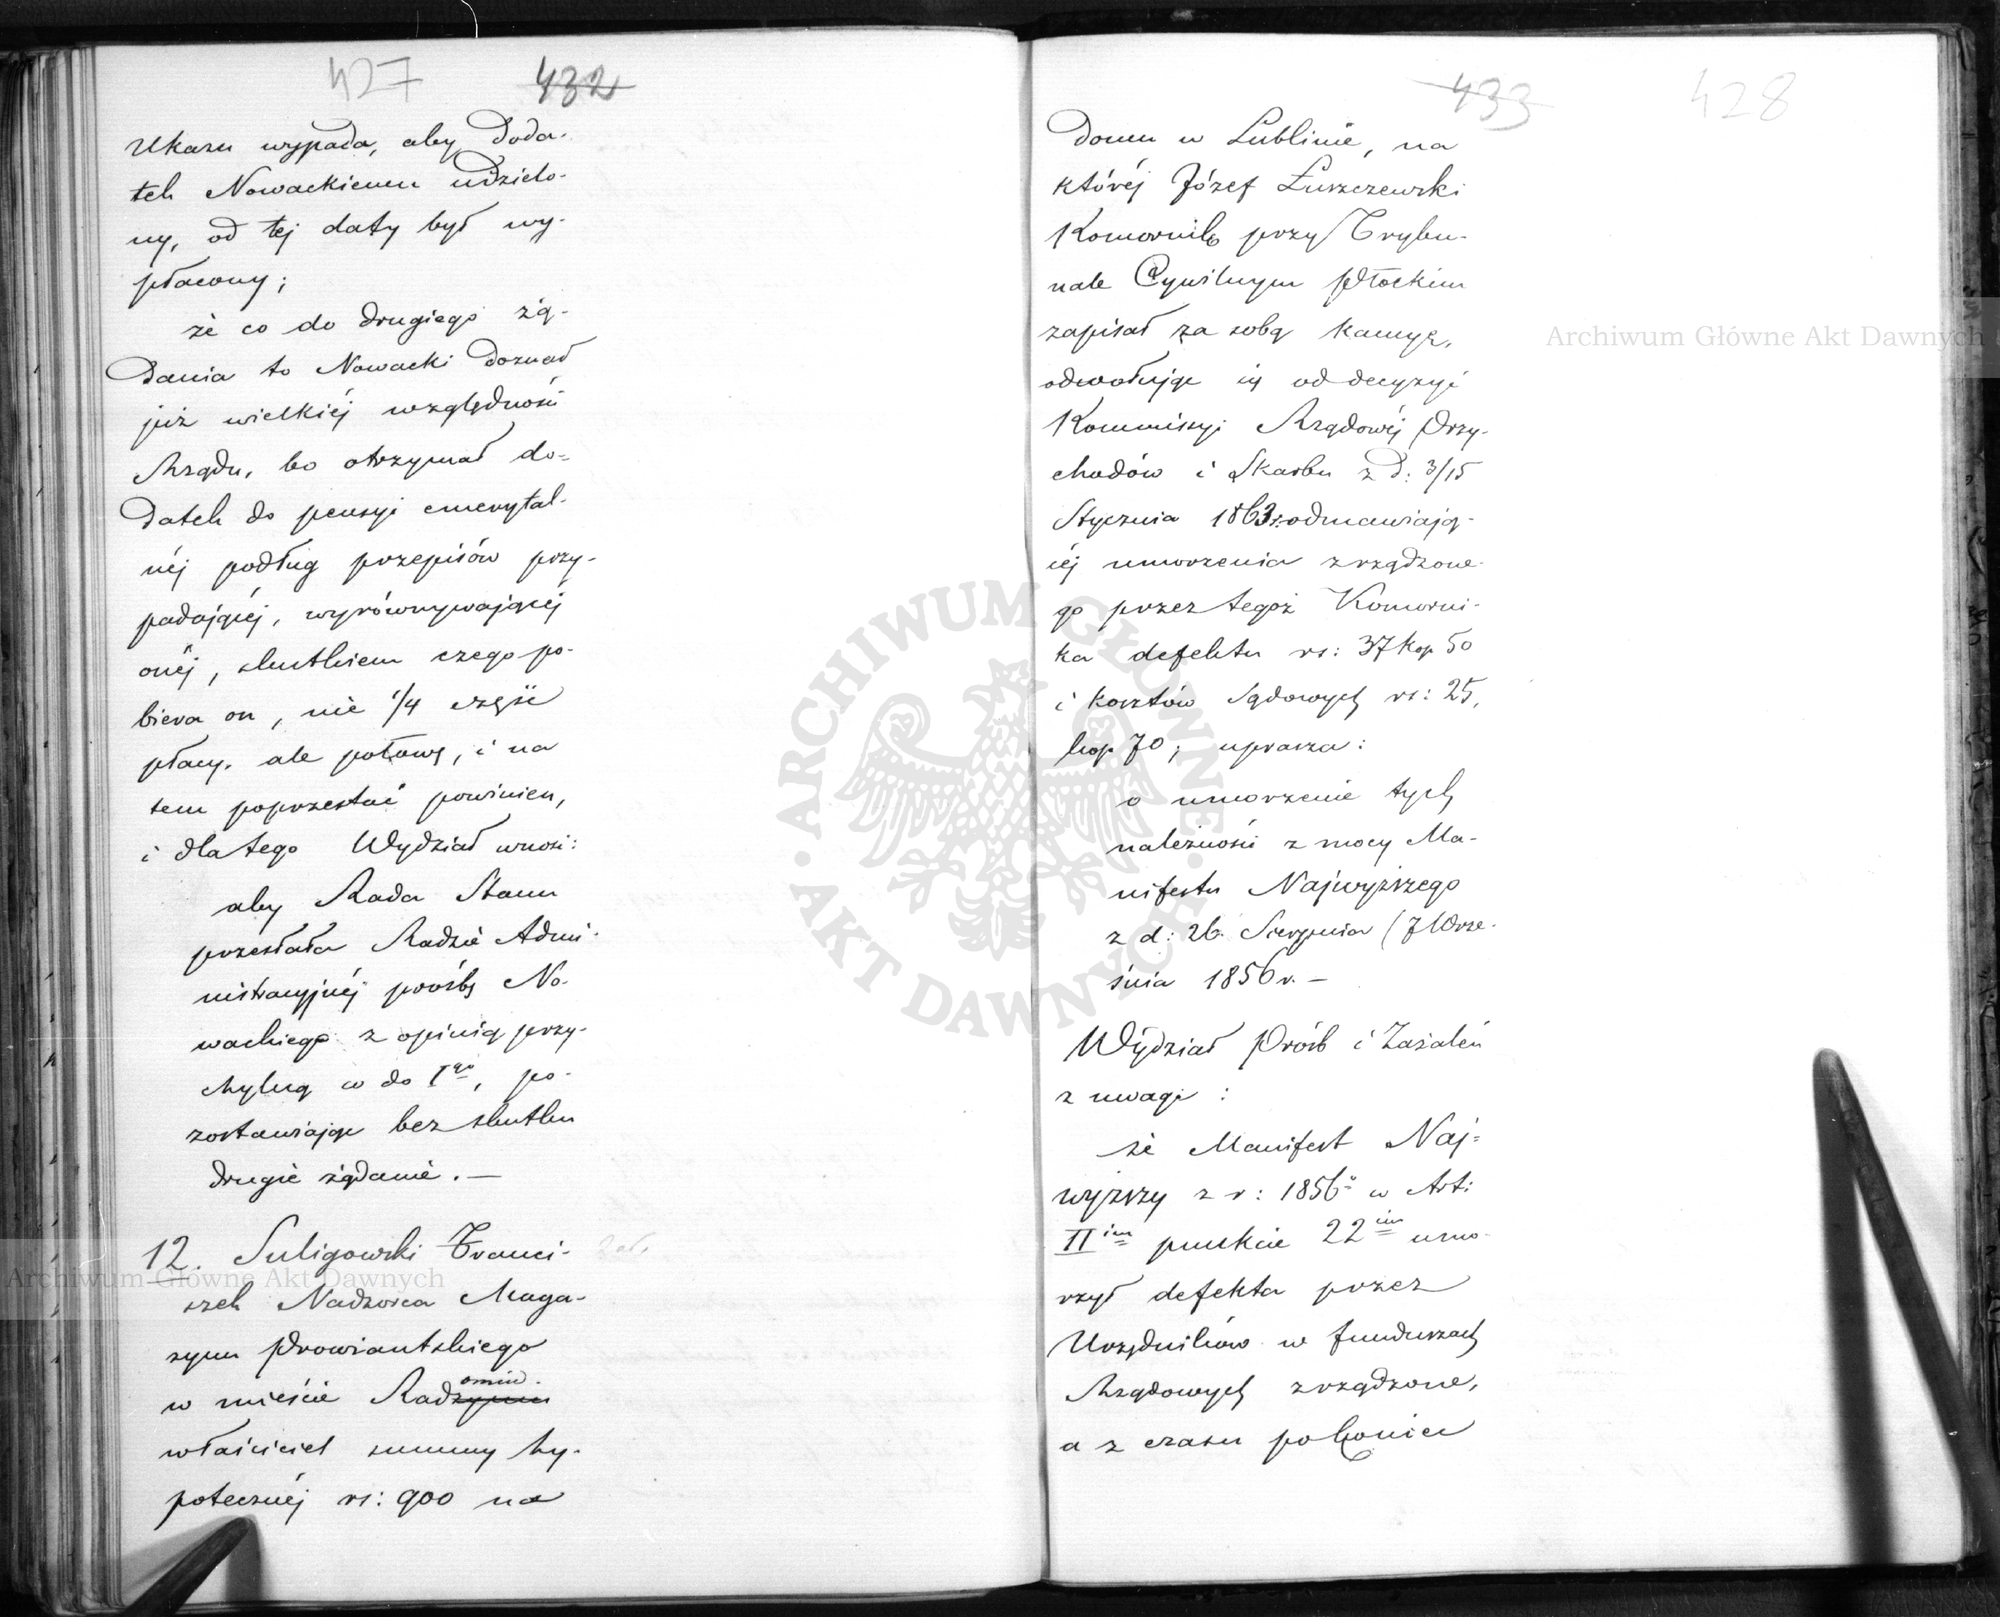 427 432
Ukazu wypada, aby Doda-
tek Nowackiemu udzielo-
ny, od tej daty był wy-
płacony;
że co do drugiego żą-
dania to Nowacki doznał
już wielkiéj względności
Rządu, bo otrzymał do-
datek do pensyi emerytal-
néj podług przepisów przy-
padającéj, wyrównywającéj
onéj, skutkiem czego po-
biera on, nie 1/4 część
płacy, ale połowę, i na
tem poprzestać powinien,
i dla tego Wydział wnosi:
aby Rada Stanu
przesłała Radzie Admi-
nistracyjnéj prośbę No-
wackiego z opinią przy-
chylną co do 1go, po-
zostawiając bez skutku
drugie żądanie. —
12. Suligowski Franci-
szek Nadzorca Maga-
zynu Prowiantskiego
omiu.
w mieście Radzyniu
właściciel summy hy-
potecznéj rs: 900 na
433 428
domu w Lublinie, na
któréj Józef Łuszczewski
Komornik przy Trybu-
nale Cywilnym Płockim
zapisał za sobą kaucyę,
odwołując się od decyzyi
Kommisyi Rządowéj Przy-
chodów i Skarbu z D: 3/15
Stycznia 1863 r. odmawiają-
céj umorzenia zrządzone-
go przez tegoż Komorni-
ka defektu rs: 37 kop 50
i kosztów sądowych rs: 25,
kop 70; uprasza:
o umorzenie tych
należności z mocy Ma-
nifestu Najwyższego
z d: 26 Sierpnia (7 Wrze-
śnia 1856 r. —
Wydział Próśb i Zażaleń
z uwagi :
że Manifest Naj-
wyższy z r: 1856o w Art:
IIim punkcie 22im umo-
rzył defekta przez
Urzędników w funduszach
Rządowych zrządzone,
a z czasu połowie
Archiwum Główne Akt Dawnych
Archiwum Główne Akt Dawnych
ARCHIWUM GŁÓWNE AKT DAWNYCH